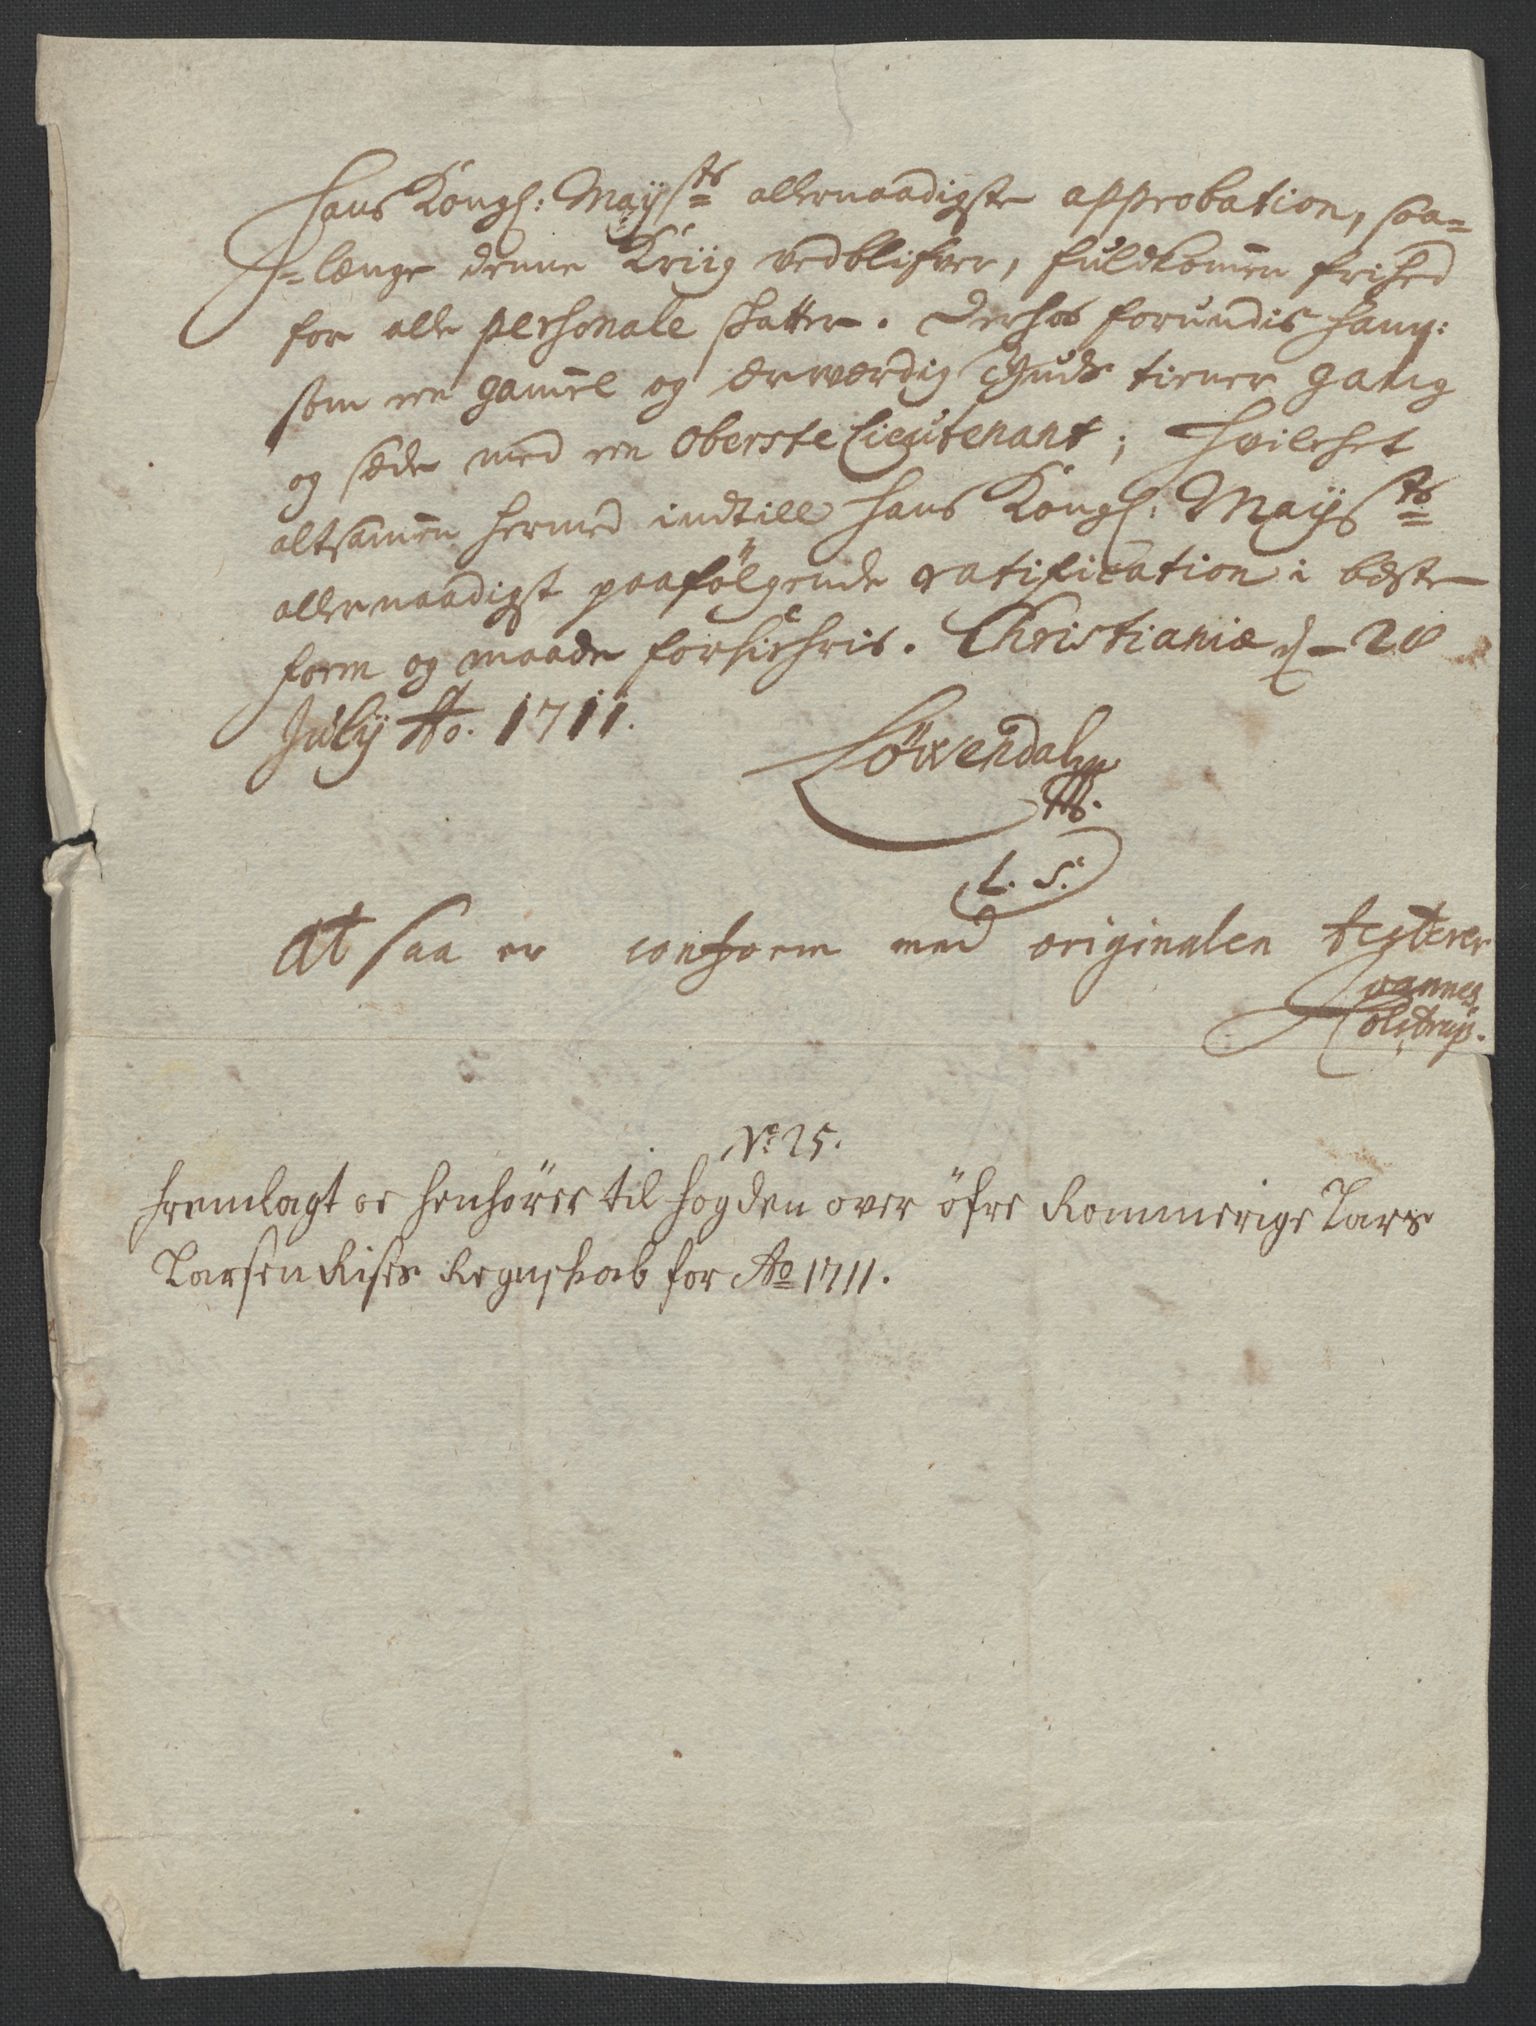 Hans Kongl: Maysts allernaadigste approbation, saa=
=længe denne Kriig vedblifver, fuldkommen frihed
for alle personale skatter. Derhos forundis ham:
som een gammel og ærværdig Guds tiener gang
og sæde med een Oberste Lieutenant; Hvilchet
altsammen hermed indtill Hans Kongl: Mayssts
allernaadigst paafølgende ratification i beste
form og maade forsichris. Christianiæ d – 20
July Ao. 1711.
Löwendahl
L. S.
At saa er conform med originalen testerer
Joannes
Colstrup.
No 25.
Fremlagt oc henhörer til Fogden over öfre Rommerige Lars
Larsen Rises Regnskab for Ao 1711.